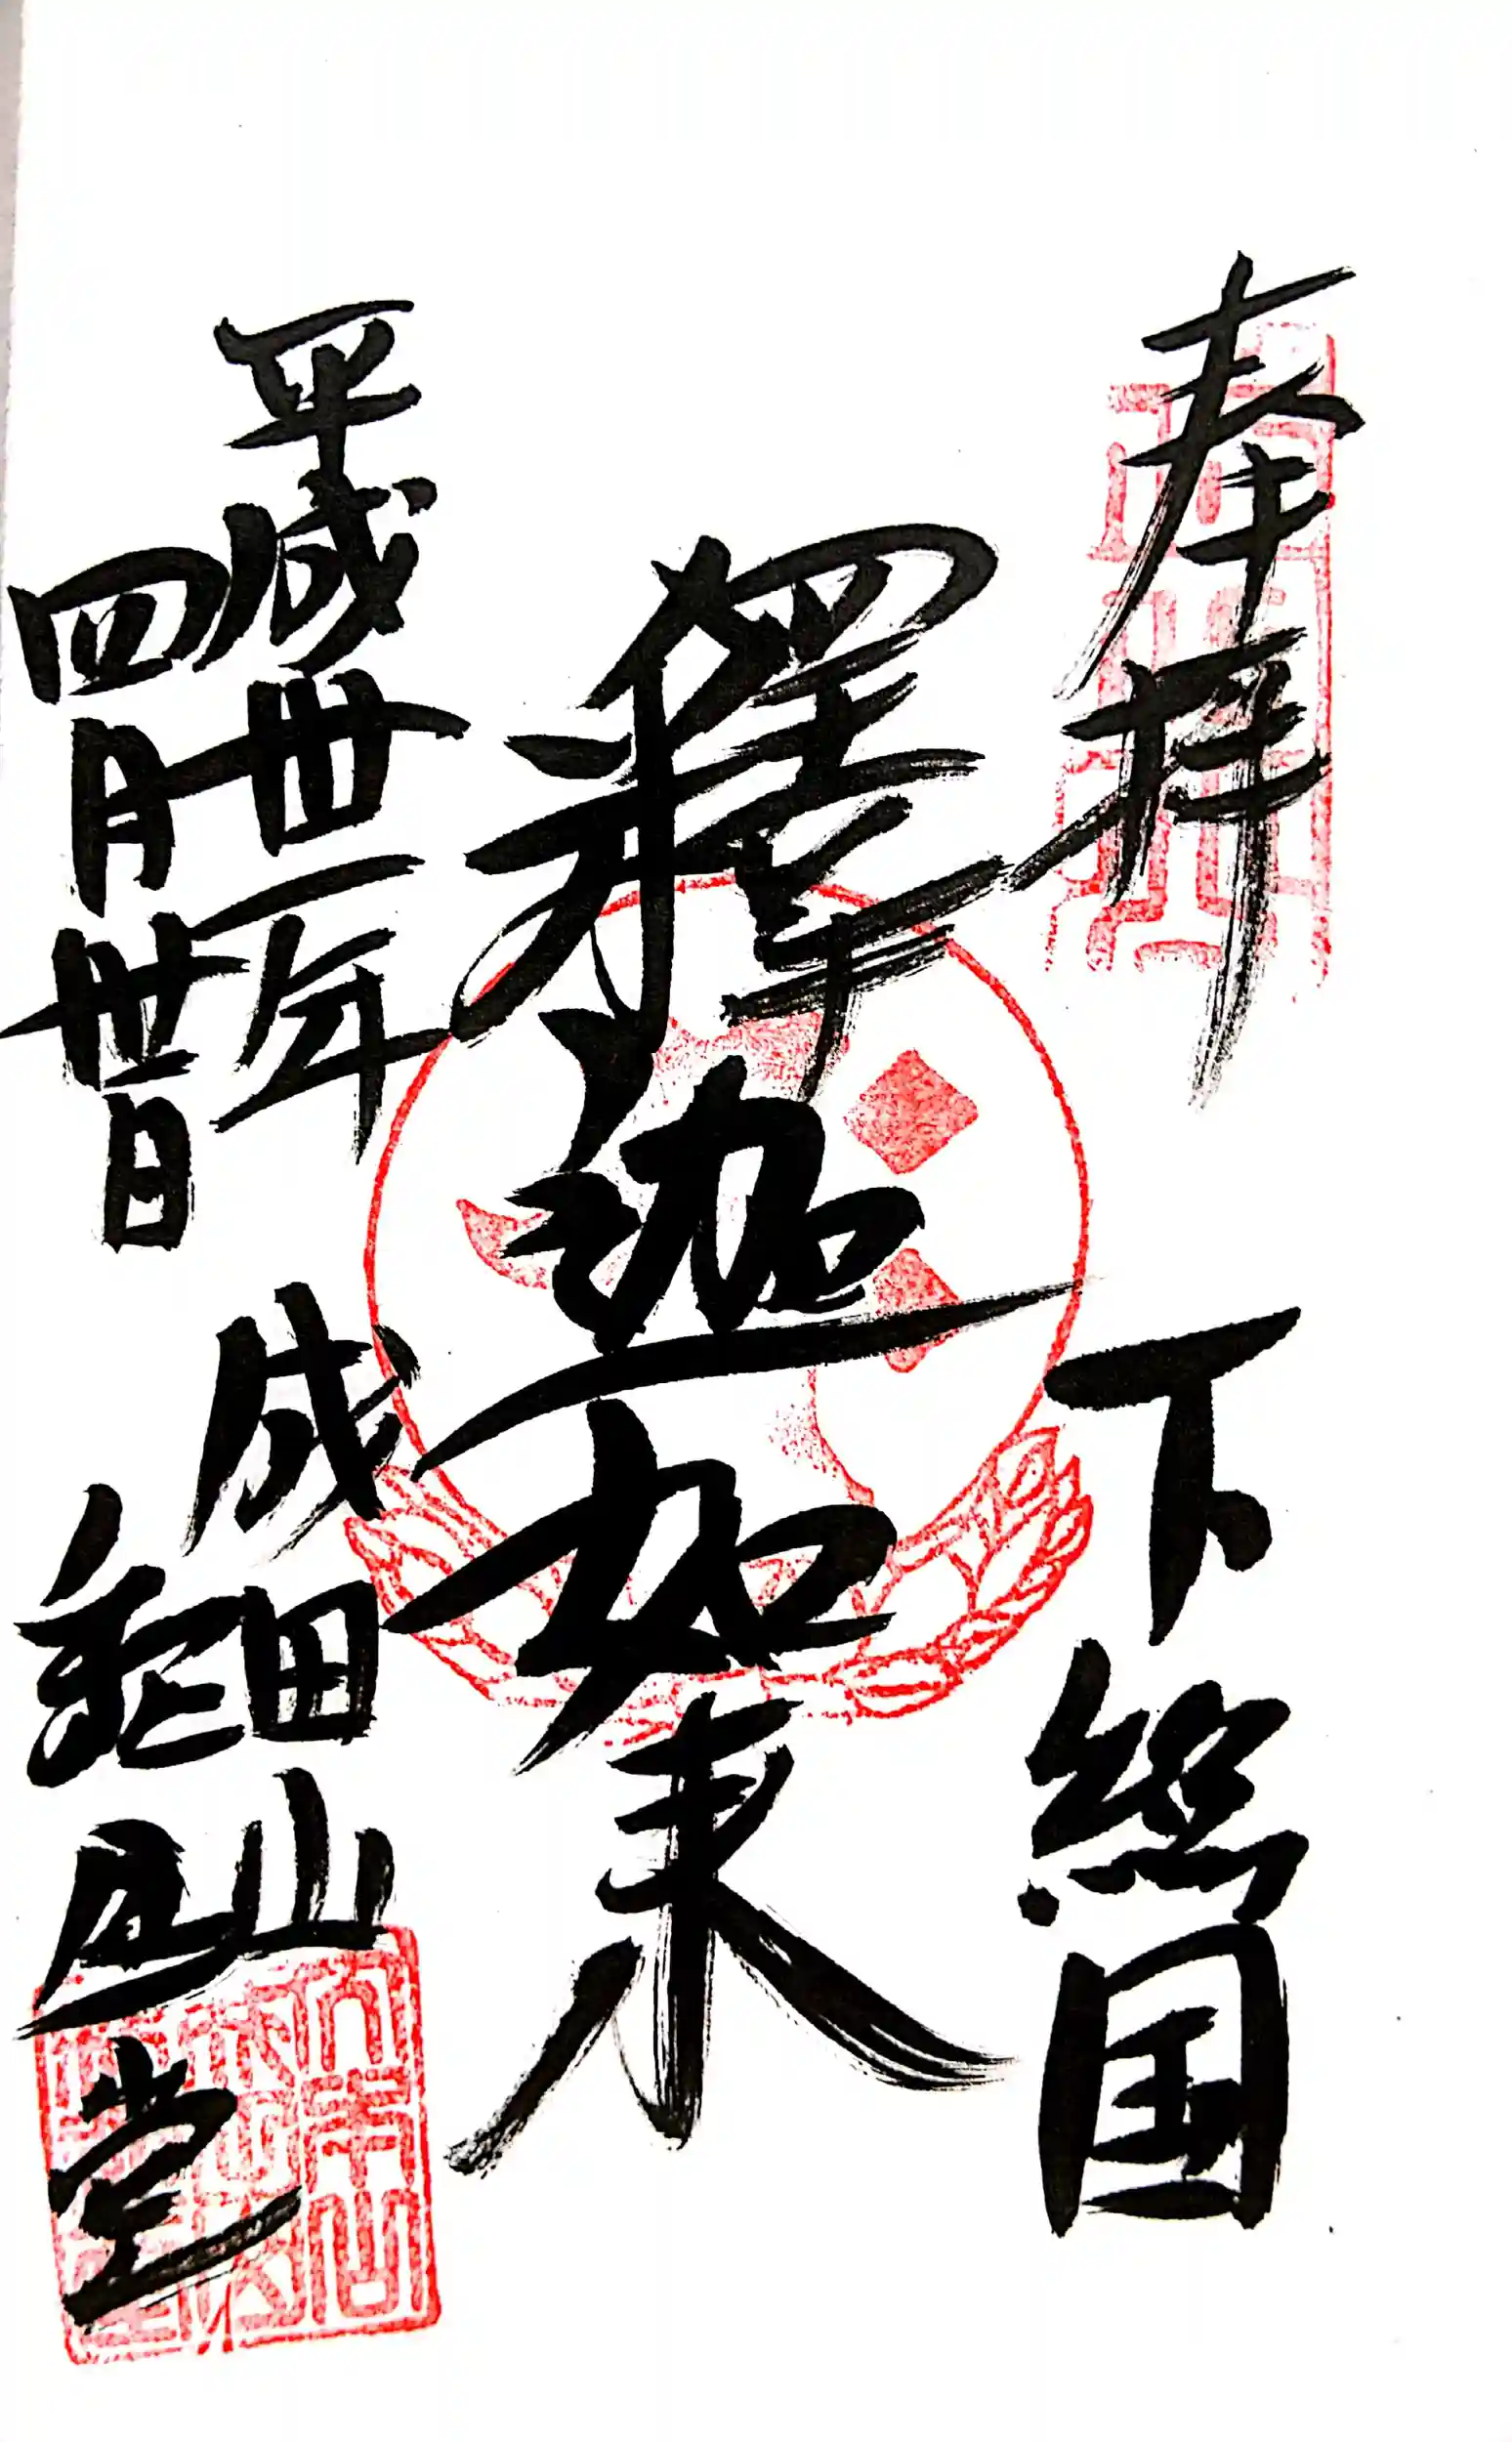 奉拝 下総国
釋迦如来
平成丗一年 成田山
四月丗日 釈迦堂